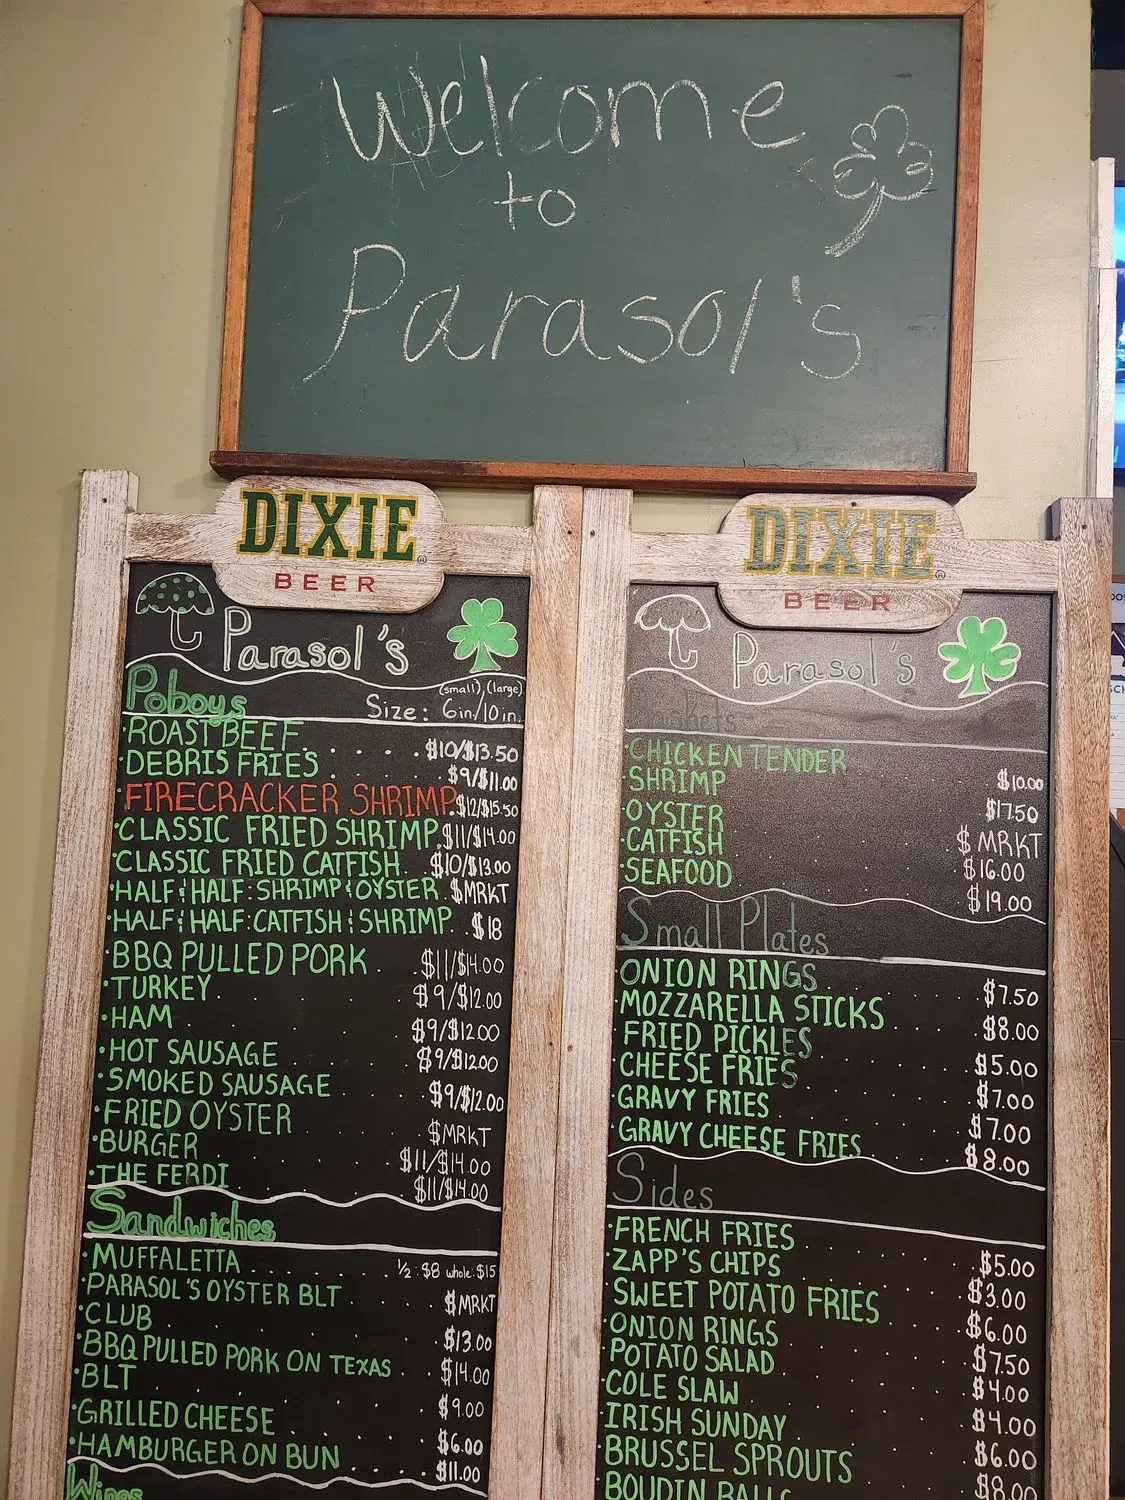 Welcome
to
Parasol's
DIXIE
BEER
Parasol's
Poboys
(small) (large)
Size: 6in/10in
·ROAST BEEF. . . . . $10/$13.50
·DEBRIS FRIES $9/$11.00
·FIRECRACKER SHRIMP. $12/$15.50
·CLASSIC FRIED SHRIMP. $11/$14.00
·CLASSIC FRIED CATFISH. . $10/$13.00
·HALF & HALF: SHRIMP & OYSTER . $MRKT
·HALF & HALF: CATFISH & SHRIMP. . $18
·BBQ PULLED PORK . . $11/$14.00
·TURKEY. . . . . $9/$12.00
·HAM . . . . . $9/$12.00
·HOT SAUSAGE . . . . $9/$12.00
·SMOKED SAUSAGE . . . $9/$12.00
·FRIED OYSTER . . . $MRKT
·BURGER . . . . $11/$14.00
·THE FERDI . . . . $11/$14.00
Sandwiches
·MUFFALETTA . . . . . . 1/2: $8 whole: $15
·PARASOL'S OYSTER BLT . . . $MRKT
·CLUB . . . . . $13.00
·BBQ PULLED PORK ON TEXAS . . $14.00
·BLT . . . . . $9.00
·GRILLED CHEESE . . . . $6.00
·HAMBURGER ON BUN . . . $11.00
Wings
DIXIE
BEER
Parasol's
·CHICKEN TENDER $10.00
·SHRIMP $17.50
·OYSTER $MRKT
·CATFISH $16.00
·SEAFOOD $19.00
Small Plates
·ONION RINGS $7.50
·MOZZARELLA STICKS . . . . $8.00
·FRIED PICKLES $5.00
·CHEESE FRIES . . . . $7.00
·GRAVY FRIES . . . . $7.00
·GRAVY CHEESE FRIES . . . $8.00
Sides
·FRENCH FRIES $5.00
·ZAPP'S CHIPS . . . . $3.00
·SWEET POTATO FRIES . . . $6.00
·ONION RINGS . . . . $7.50
·POTATO SALAD . . . . $4.00
·COLE SLAW . . . . $4.00
·IRISH SUNDAY . . . . $6.00
·BRUSSEL SPROUTS . . . $8.00
·BOUDIN BALLS